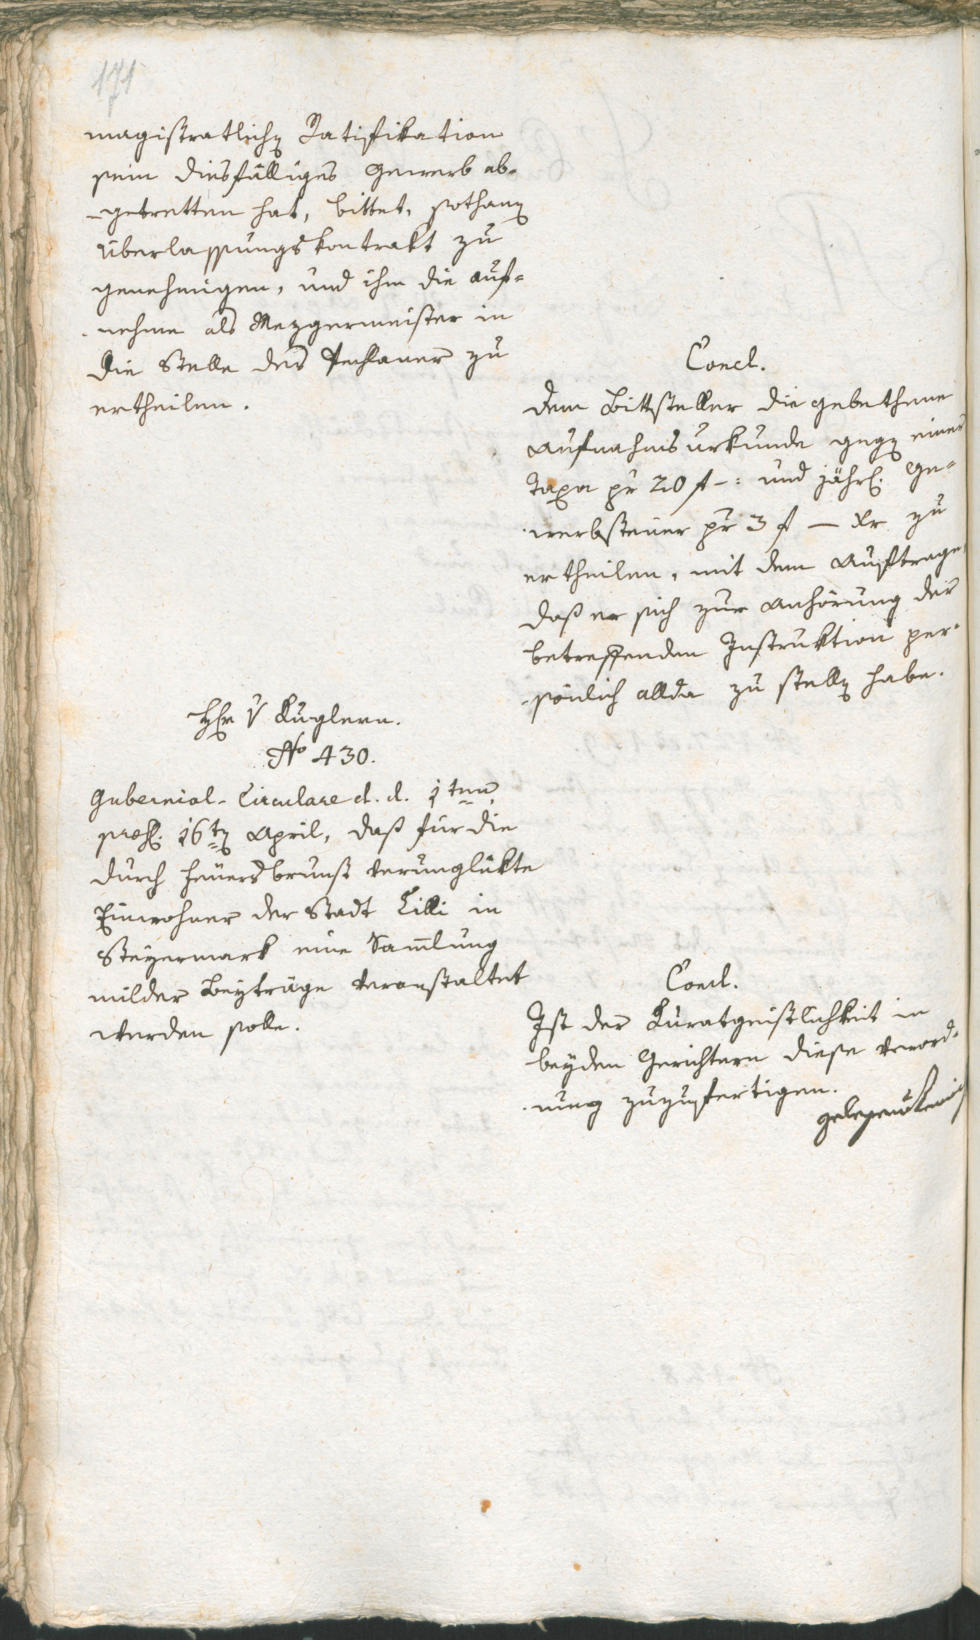 171
magistratlichen Ratifikation
sein diesfälliges Gewerb ab-
-getretten hat, bittet, sothanen
Überlassungskontrakt zu
genehmigen, und ihm die auf-
-nehme als Mezgermeister in
die Stelle des zu
ertheilen.
Concl.
dem Bittsteller die gebethene
Aufnahmsurkunde gegen einer
Taxa pr 20 f -: und jährl. Ge-
-werbsteuer pr 3 f — Xr zu
ertheilen, mit dem Auftrage,
daß er sich zur Anhörung der
betreffenden Instruktion per-
-sönlich allda zu stellen habe.
Hr v Kuglern.
No 430.
Gubernial-Circulare d. d. 1ten
präs. 16ten April, daß für die
durch Feuersbrunst verunglükte
Einwohner der Stadt Cilli in
Steyermark eine Sammlung
milder Beyträge veranstaltet
werden solle.
Concl.
Ist der Kuratgeistlichkeit in
beyden Gerichtern diese Verord-
-nung zuzufertigen.